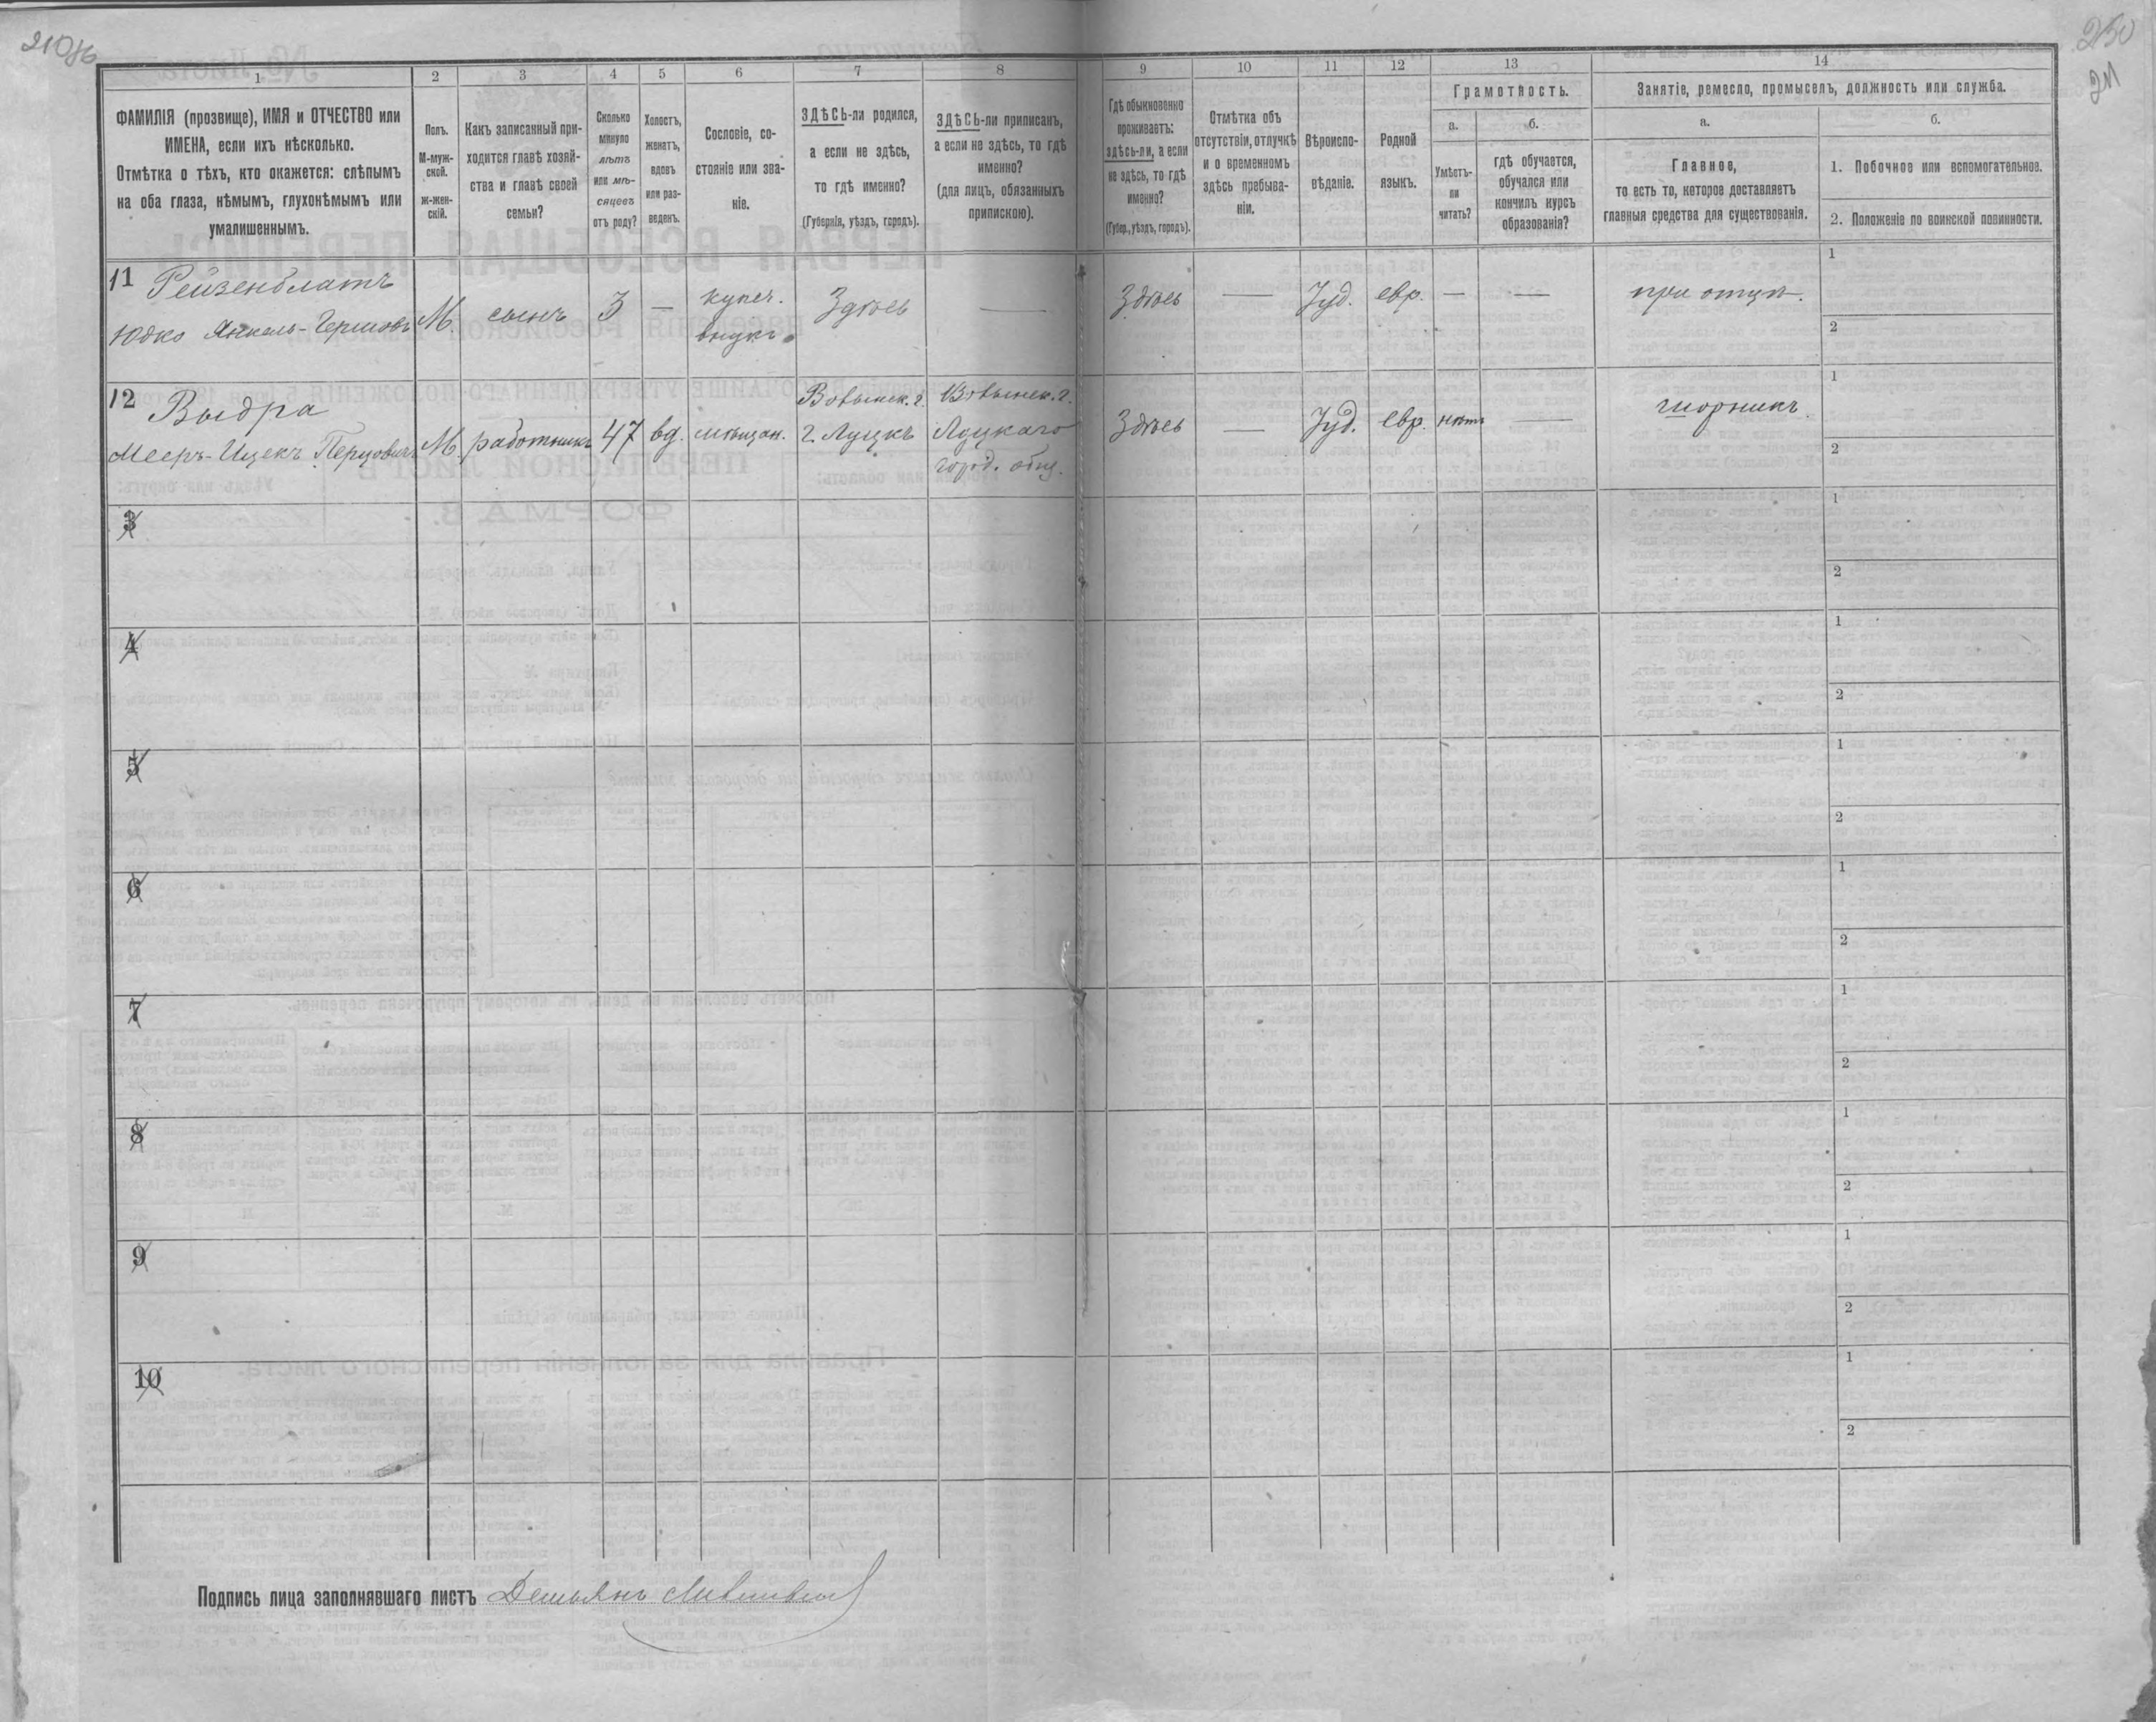 210/б
250
211
1
2
3
4
5
6
7
8
9
10
11
12
13
14
ФАМИЛІЯ (прозвище), ИМЯ и ОТЧЕСТВО или
ИМЕНА, если ихъ нѣсколько.
Отмѣтка о тѣхъ, кто окажется: слѣпымъ
на оба глаза, нѣмымъ, глухонѣмымъ или
умалишеннымъ.
Полъ.
М-муж-
ской.
Ж-жен-
скій.
Какъ записанный при-
ходится главѣ хозяй-
ства и главѣ своей
семьи?
Сколько
минуло
лѣтъ
или мѣ-
сяцевъ
отъ роду?
Холостъ,
женатъ,
вдовъ
или раз-
веденъ.
Сословіе, со-
стояніе или зва-
ніе.
ЗДѢСЬ-ли родился,
а если не здѣсь,
то гдѣ именно?
(Губернія, уѣздъ, городъ).
ЗДѢСЬ-ли приписанъ,
а если не здѣсь, то гдѣ
именно?
(для лицъ, обязанныхъ
припискою).
Гдѣ обыкновенно
проживаетъ:
здѣсь-ли, а если
не здѣсь, то гдѣ
именно?
(Губер., уѣздъ, городъ).
Отмѣтка объ
отсутствіи, отлучкѣ
и о временномъ
здѣсь пребыва-
ніи.
Вѣроиспо-
вѣданіе.
Родной
языкъ.
Грамотность.
а.
б.
Умѣетъ-
ли
читать?
гдѣ обучается,
обучался или
кончилъ курсъ
образованія?
Занятіе, ремесло, промыселъ, должность или служба.
а.
б.
Главное,
то есть то, которое доставляетъ
главныя средства для существованія.
1. Побочное или вспомогательное.
2. Положеніе по воинской повинности.
11 Рейзенблатъ
Юдко Янкель-Гершовъ
М.
сынъ
3
—
купеч.
внукъ
Здѣсь
—
Здѣсь
—
Іуд.
евр.
—
—
при отцѣ.
1
2
12 Выдра
Мееръ-Ицекъ Перцовичъ
М.
работникъ
47
вд.
мѣщан.
Волынск. г.
г. Луцкъ
Волынск. г.
Луцкаго
город. общ.
Здѣсь
—
Іуд.
евр.
нѣтъ
—
шорникъ.
1
2
3
1
2
4
1
2
5
1
2
6
1
2
7
1
2
8
1
2
9
1
2
10
1
2
Подпись лица заполнявшаго листъ Демьянъ